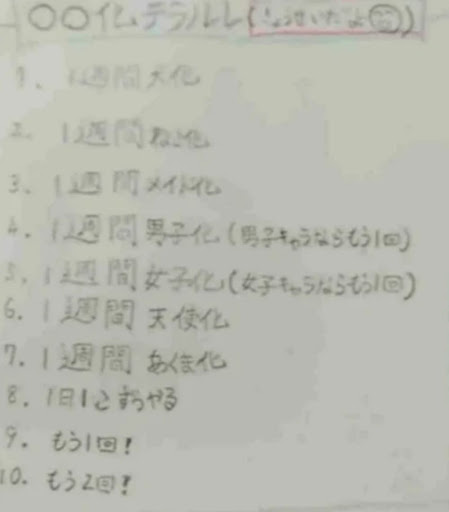 ○○化テラルレ(きょうせいだよ)
1. 1週間犬化
2. 1週間ねこ化
3. 1週間メイド化
4. 1週間男子化(男子キャラならもう1回)
5. 1週間女子化(女子キャラならもう1回)
6. 1週間天使化
7. 1週間あくま化
8. 1日1こずつやる
9. もう1回!
10. もう2回!